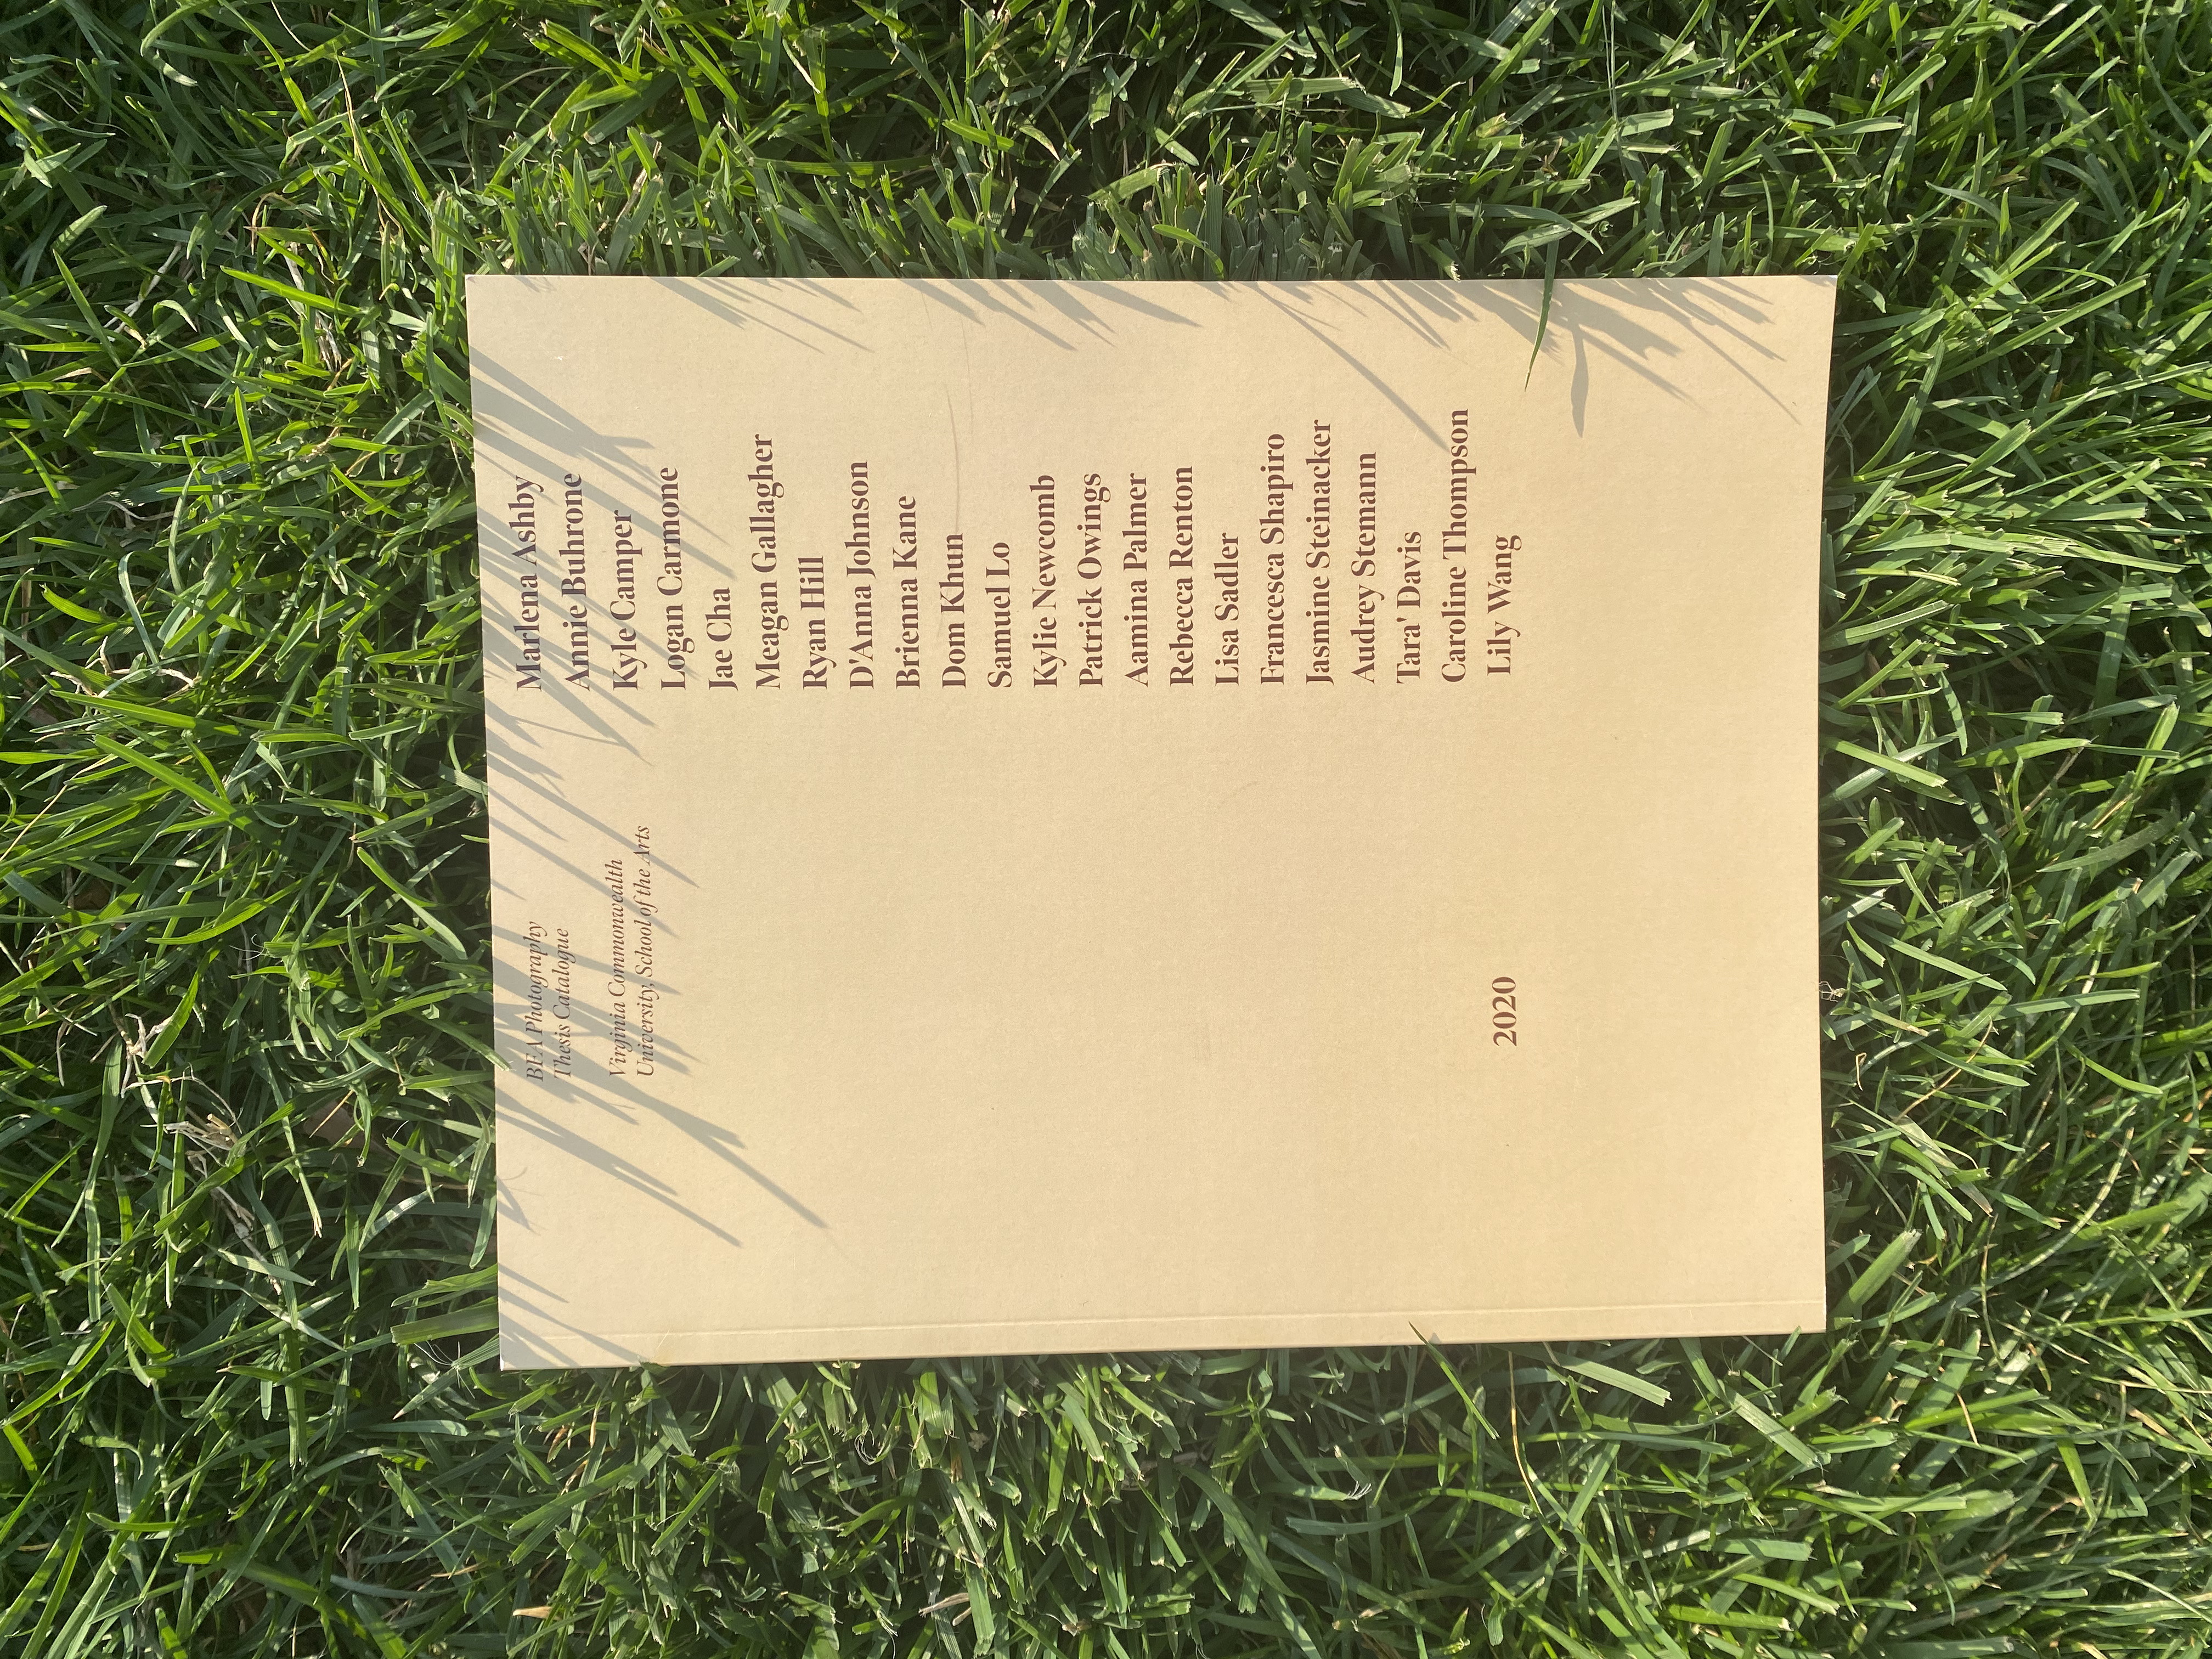 BFA Photography
Thesis Catalogue
Virginia Commonwealth
University, School of the Arts
Marlena Ashby
Annie Buhrone
Kyle Camper
Logan Carmone
Jae Cha
Meagan Gallagher
Ryan Hill
D'Anna Johnson
Brienna Kane
Dom Khun
Samuel Lo
Kylie Newcomb
Patrick Owings
Aamina Palmer
Rebecca Renton
Lisa Sadler
Francesca Shapiro
Jasmine Steinacker
Audrey Stemann
Tara' Davis
Caroline Thompson
Lily Wang
2020